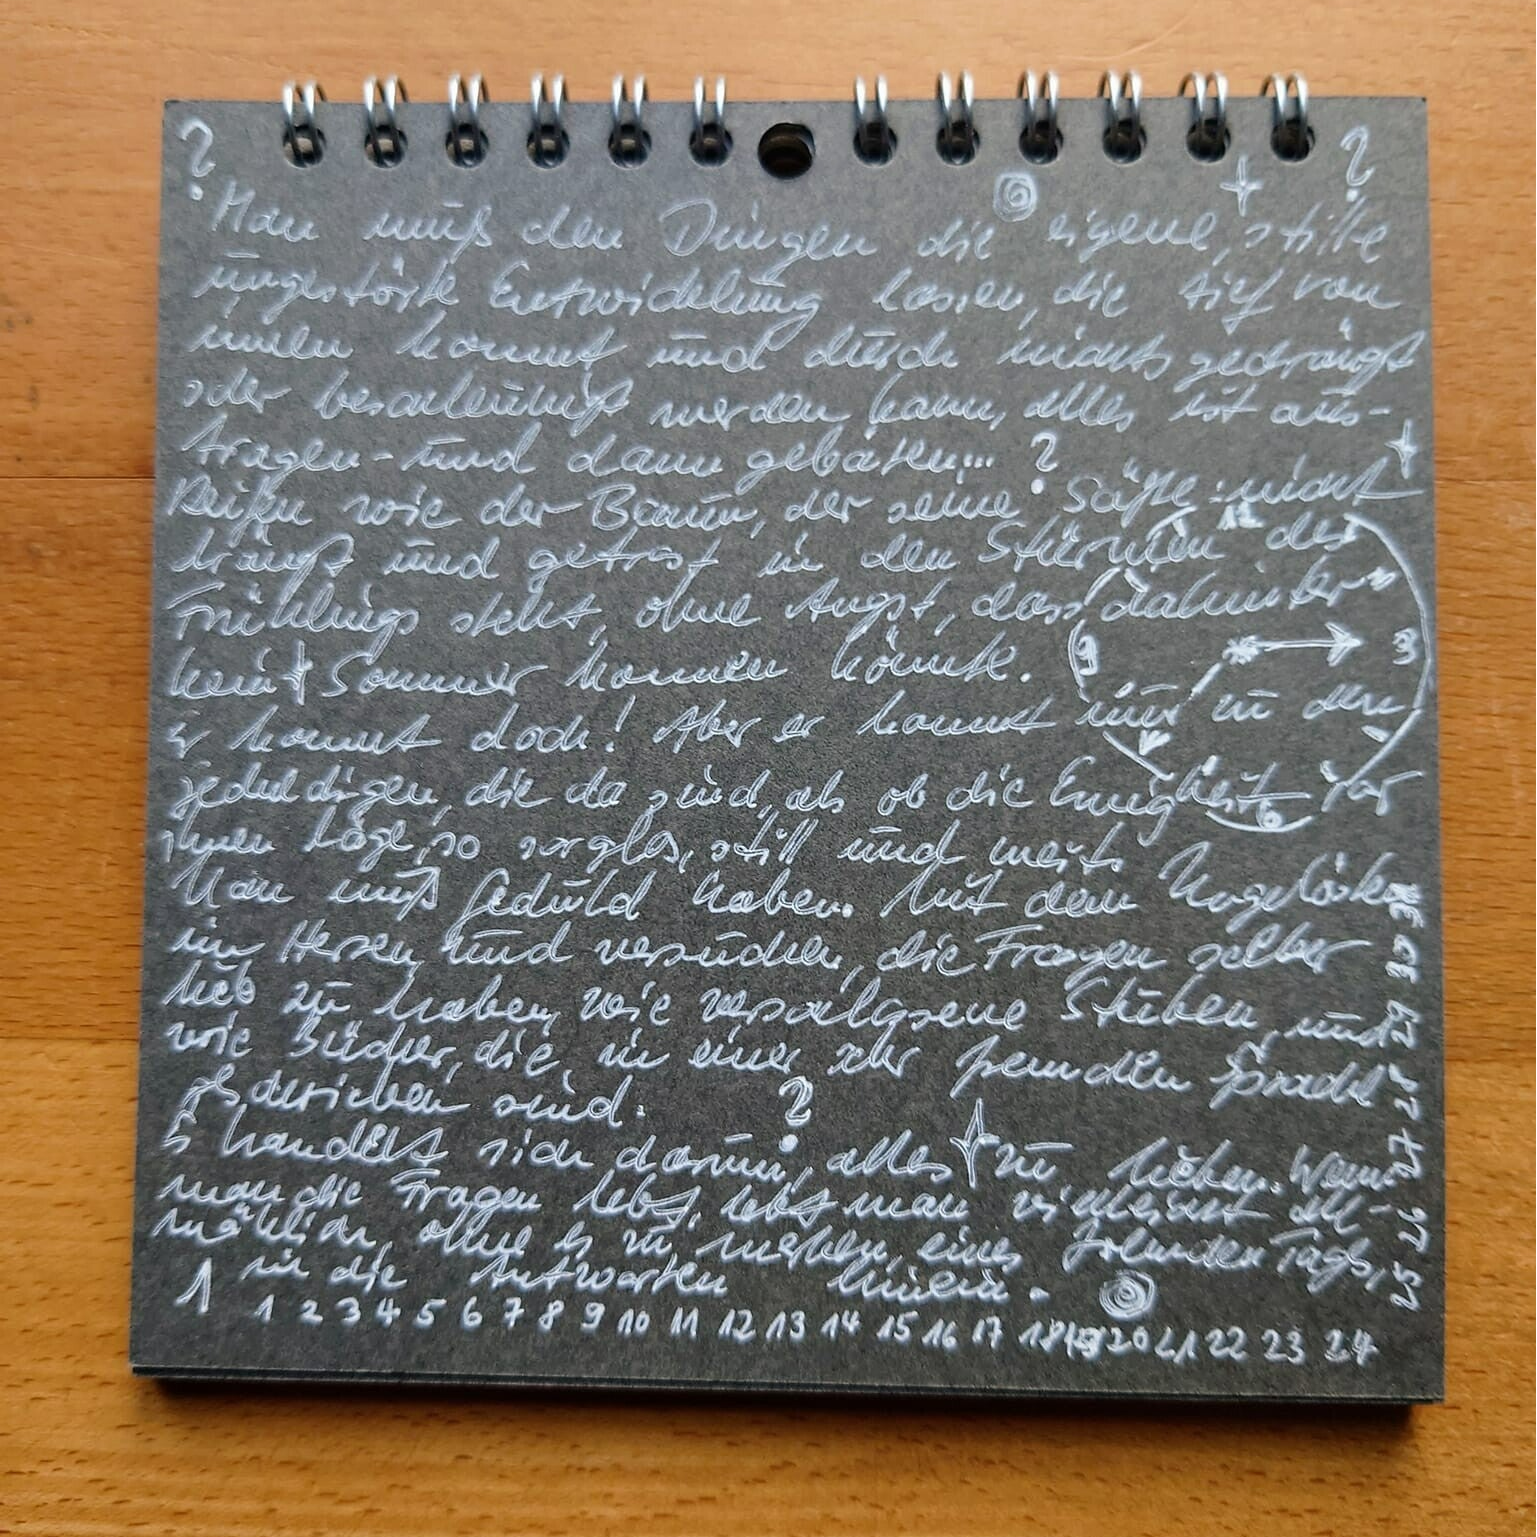 ? ?
Man muß den Dingen die eigene, stille
ungestörte Entwicklung lassen, die tief von
innen kommt und durch nichts gedrängt
oder beschleunigt werden kann, alles ist aus-
tragen - und dann gebären... ?
Reifen wie der Baum, der seine Säfte nicht
drängt und getrost in den Stürmen des
Frühlings steht, ohne Angst, dass dahinter
kein Sommer kommen könnte.
Er kommt doch! Aber er kommt nur zu den
geduldigen, die da sind, als ob die Ewigkeit vor
ihnen läge, so sorglos, still und weit.
Man muß Geduld haben. Mit dem Ungelösten
im Herzen und versuchen, die Fragen selber
lieb zu haben, wie verschlossene Stuben, und
wie Bücher, die in einer sehr fremden Sprache
geschrieben sind. ?
Es handelt sich darum, alles zu lieben. Wenn
man die Fragen lebt, lebt man vielleicht all-
mählich, ohne es zu merken, eines fremden Tags,
in die Antworten hinein.
12
3
6
9
1
1 2 3 4 5 6 7 8 9 10 11 12 13 14 15 16 17 18 19 20 21 22 23 24
25 26 27 28 29 30 31